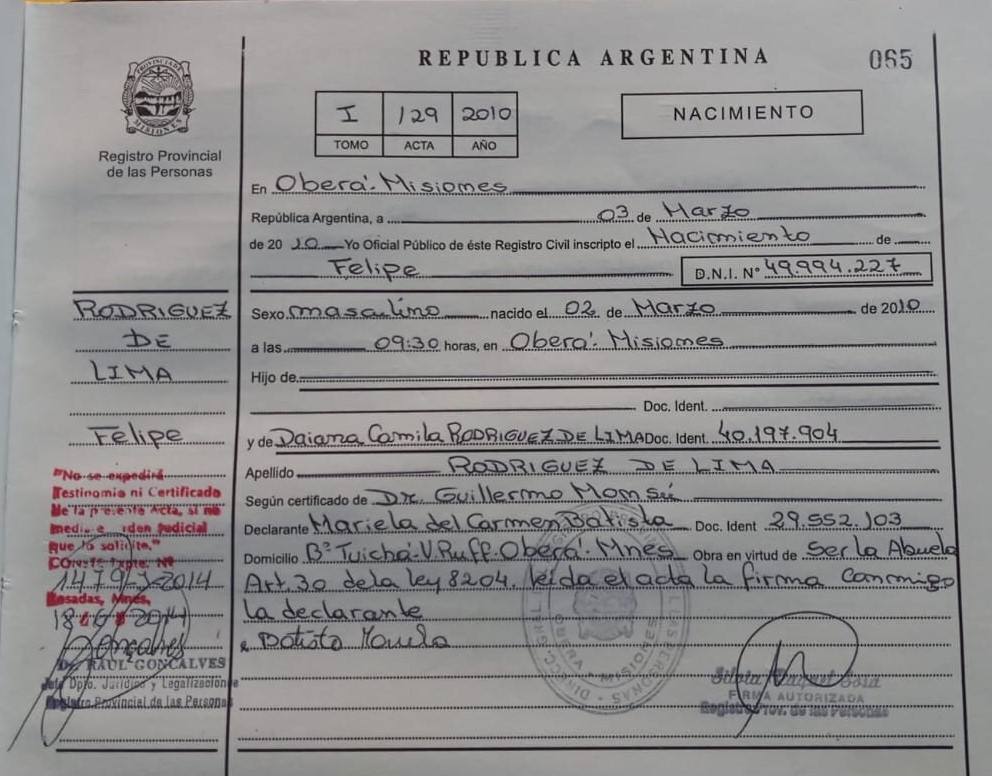 REPUBLICA ARGENTINA
065
PROVINCIA DE MISIONES
Registro Provincial
de las Personas
I 129 2010
TOMO ACTA AÑO
NACIMIENTO
En Oberá. Misiones
República Argentina, a 03 de Marzo
de 2010 Yo Oficial Público de éste Registro Civil inscripto el Nacimiento de
Felipe D.N.I. Nº 49.994.227
Sexo masculino nacido el 02 de Marzo de 2010
a las 09:30 horas, en Oberá. Misiones
Hijo de
Doc. Ident.
y de Daiana Camila RODRIGUEZ DE LIMA Doc. Ident. 40.197.904
Apellido RODRIGUEZ DE LIMA
Según certificado de Dr. Guillermo
Declarante Mariela del Carmen Batista Doc. Ident 29.552.103
Domicilio Bº Tuichá-V.Ruff.Oberá. Mnes Obra en virtud de Ser la Abuela
Art.30 de la ley 8204. leída el acta la firma Conmigo
la declarante
Batista
RODRIGUEZ
DE
LIMA
Felipe
"No se expedirá
Testimonio ni Certificado
de la presente Acta, si no
medie orden judicial
que lo solicite."
Conste Expte. Nº
2014
Posadas, Mnes,
2014
Dr. RAUL GONCALVES
Jefe Dpto. Jurídico y Legalizaciones
Registro Provincial de las Personas
FIRMA AUTORIZADA
Registro Prov. de las Personas